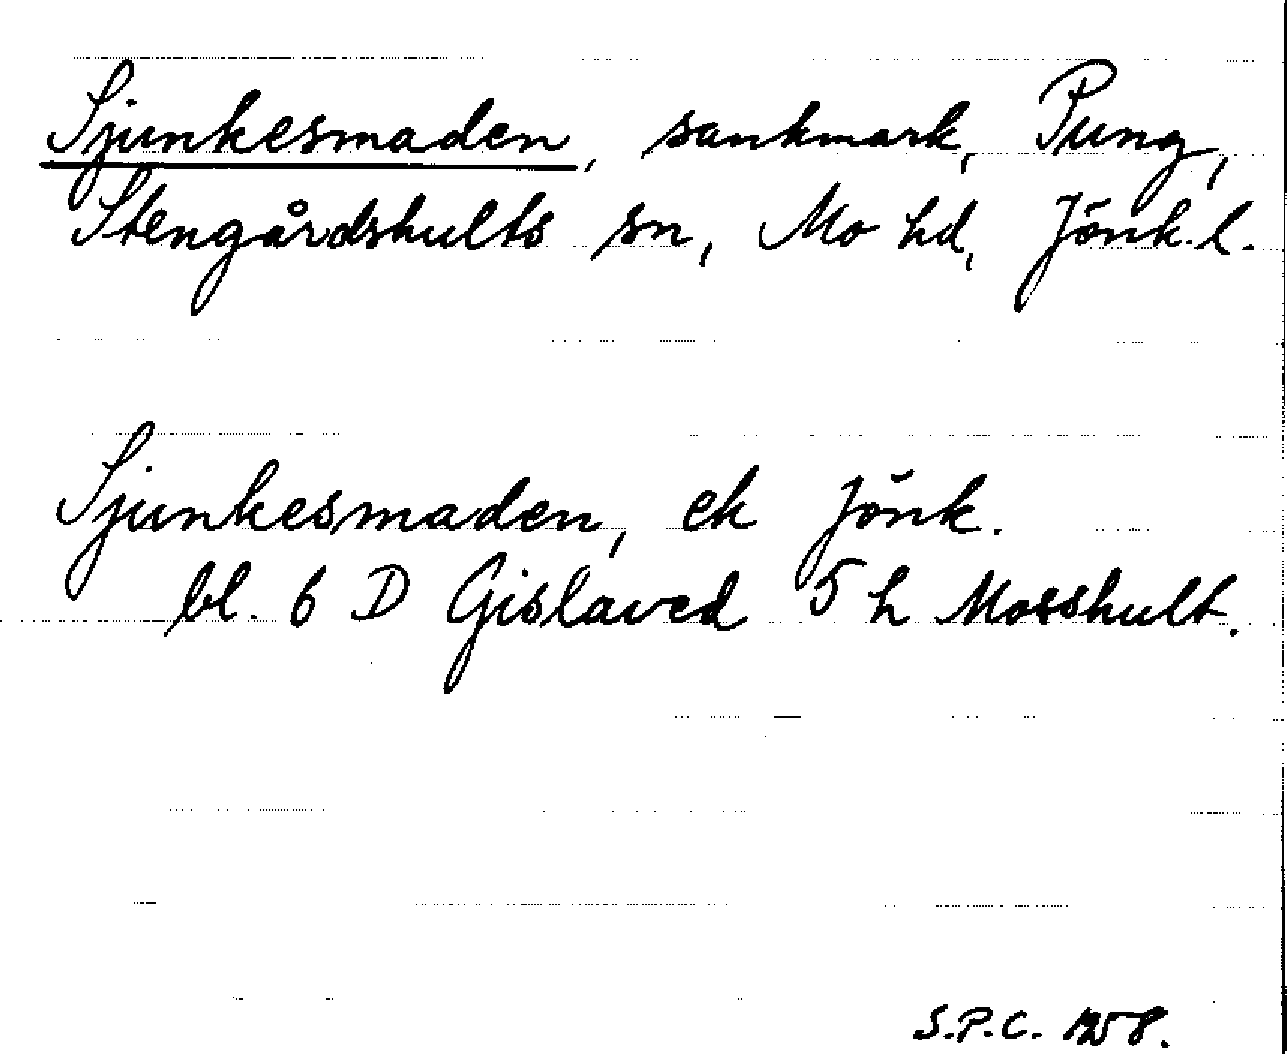 Sjunkesmaden, sankmark, Pung,
Stengårdshults sn, Mo hd, Jönk. l.
Sjunkesmaden, ek Jönk.
bl. 6 D Gislaved 5 h Mosshult.
S.P.C. 1958.